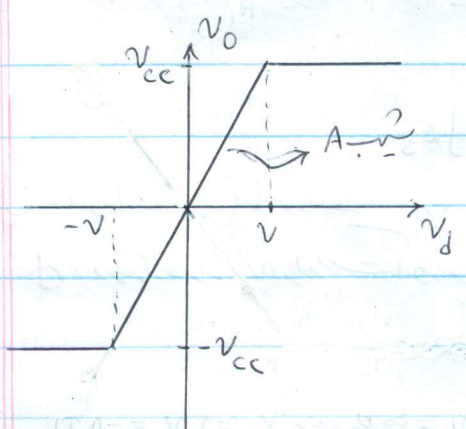 V₀
Vcc
A
-V
V
Vd
-Vcc